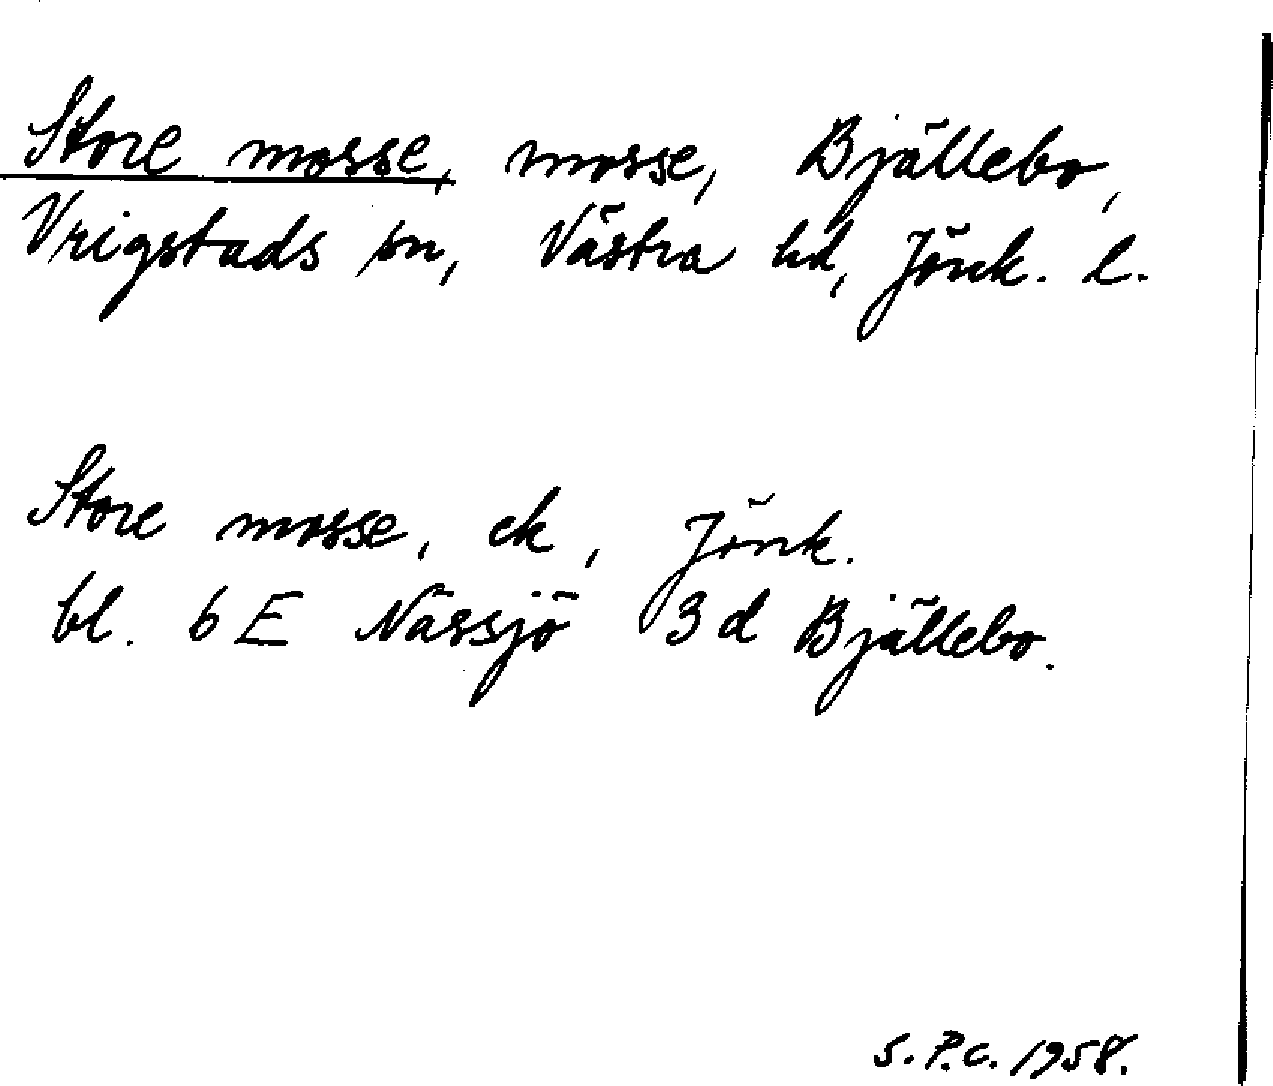 Store mosse, mosse, Bjällebo,
Vrigstads sn, Västra hd, Jönk. l.
Store mosse, ek, Jönk.
bl. 6 E Nässjö 3 d Bjällebo.
S.P.C. 1958.